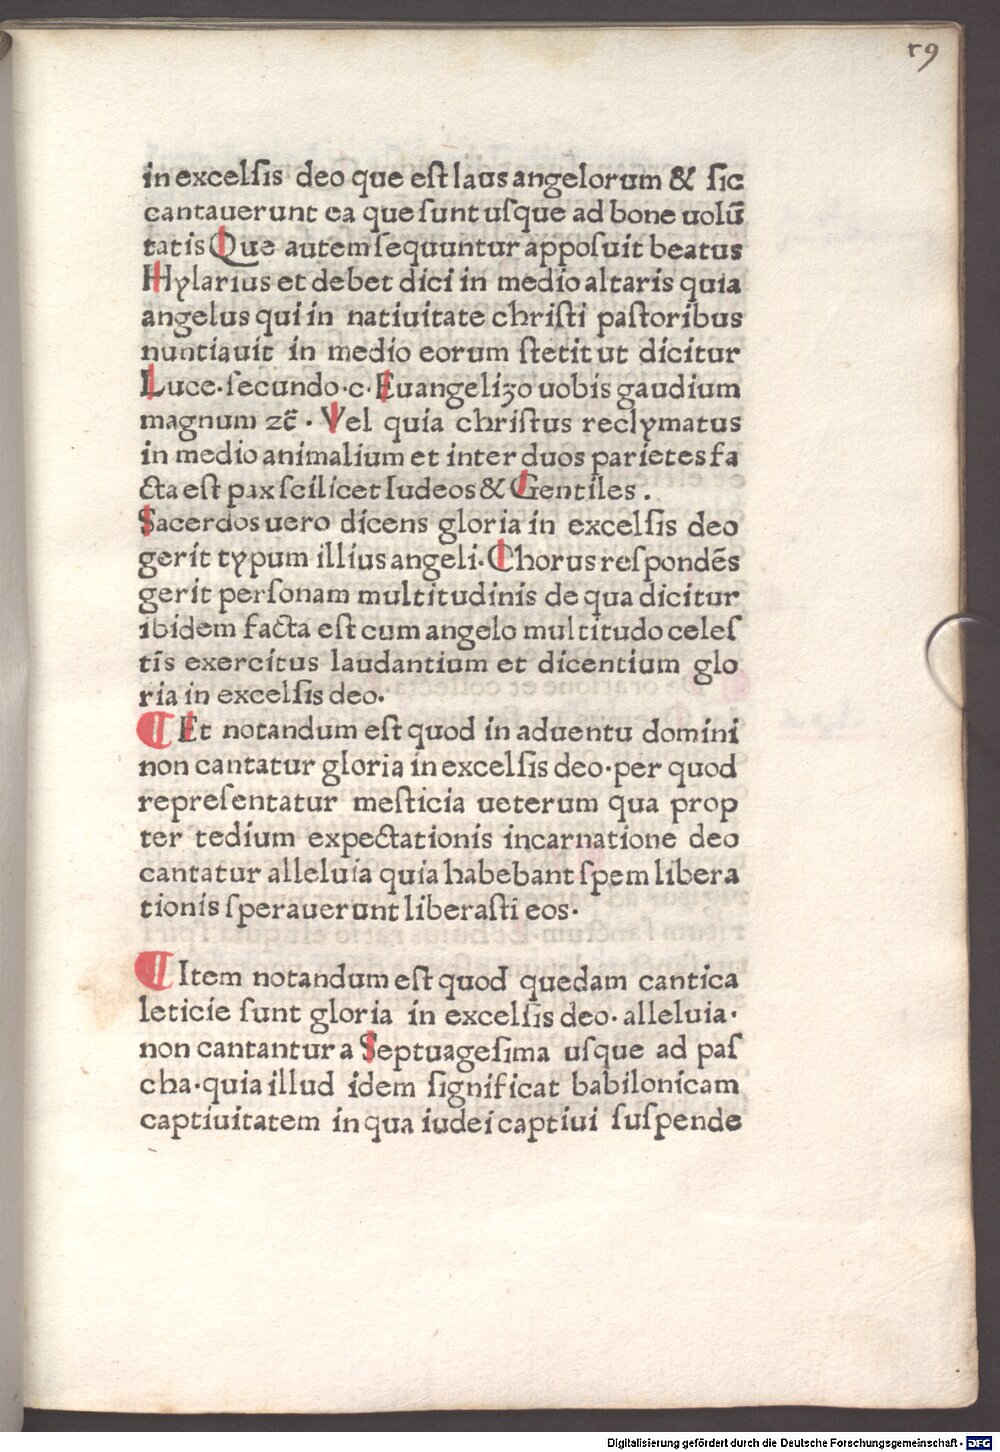 59
in excelſis deo que eſt laus angelorum & ſic
cantauerunt ea que ſunt uſque ad bone uolū
tatis Que autem ſequuntur appoſuit beatus
Hylarius et debet dici in medio altaris quia
angelus qui in natiuitate chriſti paſtoribus
nuntiauit in medio eorum ſtetit ut dicitur
Luce·ſecundo·c·Euangelizo uobis gaudium
magnum ⁊c̄· Vel quia chriſtus reclymatus
in medio animalium et inter duos parietes fa
cta eſt pax ſcilicet Iudeos & Gentiles.
Sacerdos uero dicens gloria in excelſis deo
gerit typum illius angeli·Chorus reſpondēs
gerit perſonam multitudinis de qua dicitur
ibidem facta eſt cum angelo multitudo celeſ
tīs exercitus laudantium et dicentium glo
ria in excelſis deo·
¶ Et notandum eſt quod in aduentu domini
non cantatur gloria in excelſis deo·per quod
repreſentatur meſticia ueterum qua prop
ter tedium expectationis incarnatione deo
cantatur alleluia quia habebant ſpem libera
tionis ſperauerunt liberaſti eos·
¶ Item notandum eſt quod quedam cantica
leticie ſunt gloria in excelſis deo·alleluia·
non cantantur a Septuageſima uſque ad paſ
cha·quia illud idem ſignificat babilonicam
captiuitatem in qua iudei captiui ſuſpende
Digitalisierung gefördert durch die Deutsche Forschungsgemeinschaft - DFG